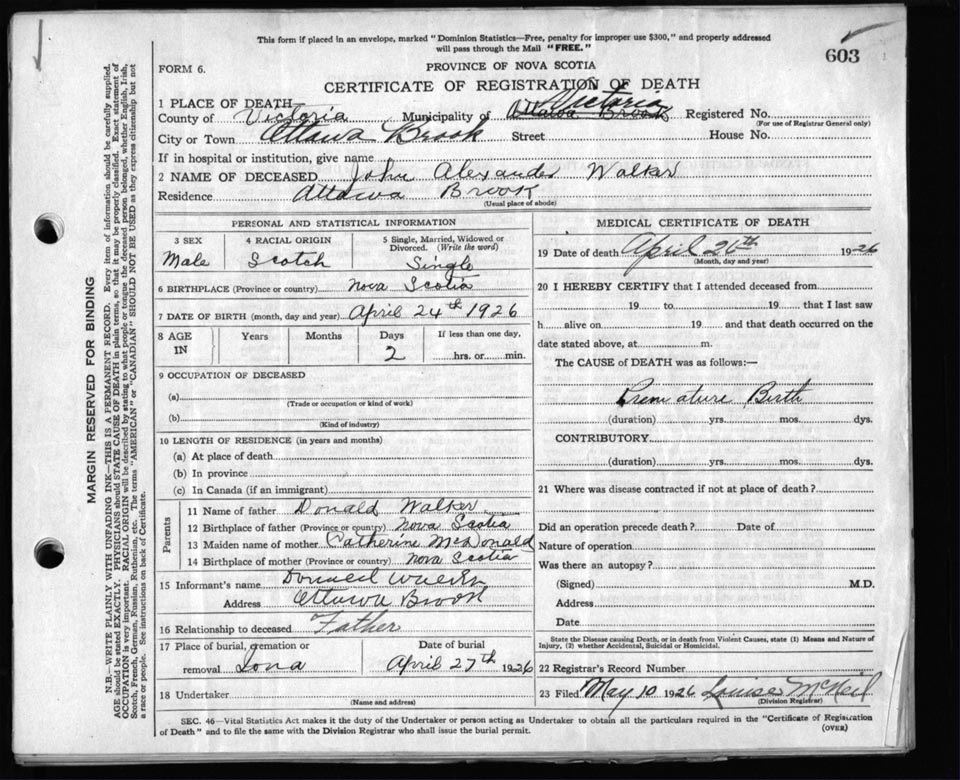 This form if placed in an envelope, marked "Dominion Statistics—Free, penalty for improper use $300," and properly addressed
will pass through the Mail "FREE."
603
FORM 6.
PROVINCE OF NOVA SCOTIA
CERTIFICATE OF REGISTRATION OF DEATH
1 PLACE OF DEATH
County of Victoria Municipality of Ottawa Brook Victoria Registered No.
(For use of Registrar General only)
City or Town Ottawa Brook Street House No.
If in hospital or institution, give name
2 NAME OF DECEASED John Alexander Walker
Residence Ottawa Brook
(Usual place of abode)
PERSONAL AND STATISTICAL INFORMATION
3 SEX 4 RACIAL ORIGIN 5 Single, Married, Widowed or
Divorced. (Write the word)
Male Scotch Single
6 BIRTHPLACE (Province or country) Nova Scotia
7 DATE OF BIRTH (month, day and year) April 24th 1926
8 AGE IN Years Months Days If less than one day,
2 hrs. or min.
9 OCCUPATION OF DECEASED
(a)
(Trade or occupation or kind of work)
(b)
(Kind of industry)
10 LENGTH OF RESIDENCE (in years and months)
(a) At place of death
(b) In province
(c) In Canada (if an immigrant)
Parents
11 Name of father Donald Walker
12 Birthplace of father (Province or country) Nova Scotia
13 Maiden name of mother Catherine McDonald
14 Birthplace of mother (Province or country) Nova Scotia
15 Informant's name Donald Walker
Address Ottawa Brook
16 Relationship to deceased Father
17 Place of burial, cremation or Date of burial
removal Iona April 27th 1926
18 Undertaker
(Name and address)
MEDICAL CERTIFICATE OF DEATH
19 Date of death April 26th 1926
(Month, day and year)
20 I HEREBY CERTIFY that I attended deceased from
19 to 19 that I last saw
h alive on 19 and that death occurred on the
date stated above, at m.
The CAUSE of DEATH was as follows:—
Premature Birth
(duration) yrs. mos. dys.
CONTRIBUTORY
(duration) yrs. mos. dys.
21 Where was disease contracted if not at place of death?
Did an operation precede death? Date of
Nature of operation
Was there an autopsy?
(Signed) M.D.
Address
Date
State the Disease causing Death, or in death from Violent Causes, state (1) Means and Nature of
Injury, (2) whether Accidental, Suicidal or Homicidal.
22 Registrar's Record Number
23 Filed May 10 1926 Louise McNeil
(Division Registrar)
SEC. 46—Vital Statistics Act makes it the duty of the Undertaker or person acting as Undertaker to obtain all the particulars required in the "Certificate of Registration
of Death" and to file the same with the Division Registrar who shall issue the burial permit.
(OVER)
MARGIN RESERVED FOR BINDING
N.B.—WRITE PLAINLY WITH UNFADING INK—THIS IS A PERMANENT RECORD. Every item of information should be carefully supplied.
AGE should be stated EXACTLY. PHYSICIANS should STATE CAUSE OF DEATH in plain terms, so that it may be properly classified. Exact statement of
OCCUPATION is very important. RACIAL ORIGIN will be described by stating to what people or tongue the deceased person belonged, whether English, Irish,
Scotch, French, German, Russian, Ruthenian, etc. The terms "AMERICAN" or "CANADIAN" SHOULD NOT BE USED as they express citizenship but not
a race or people. See instructions on back of Certificate.